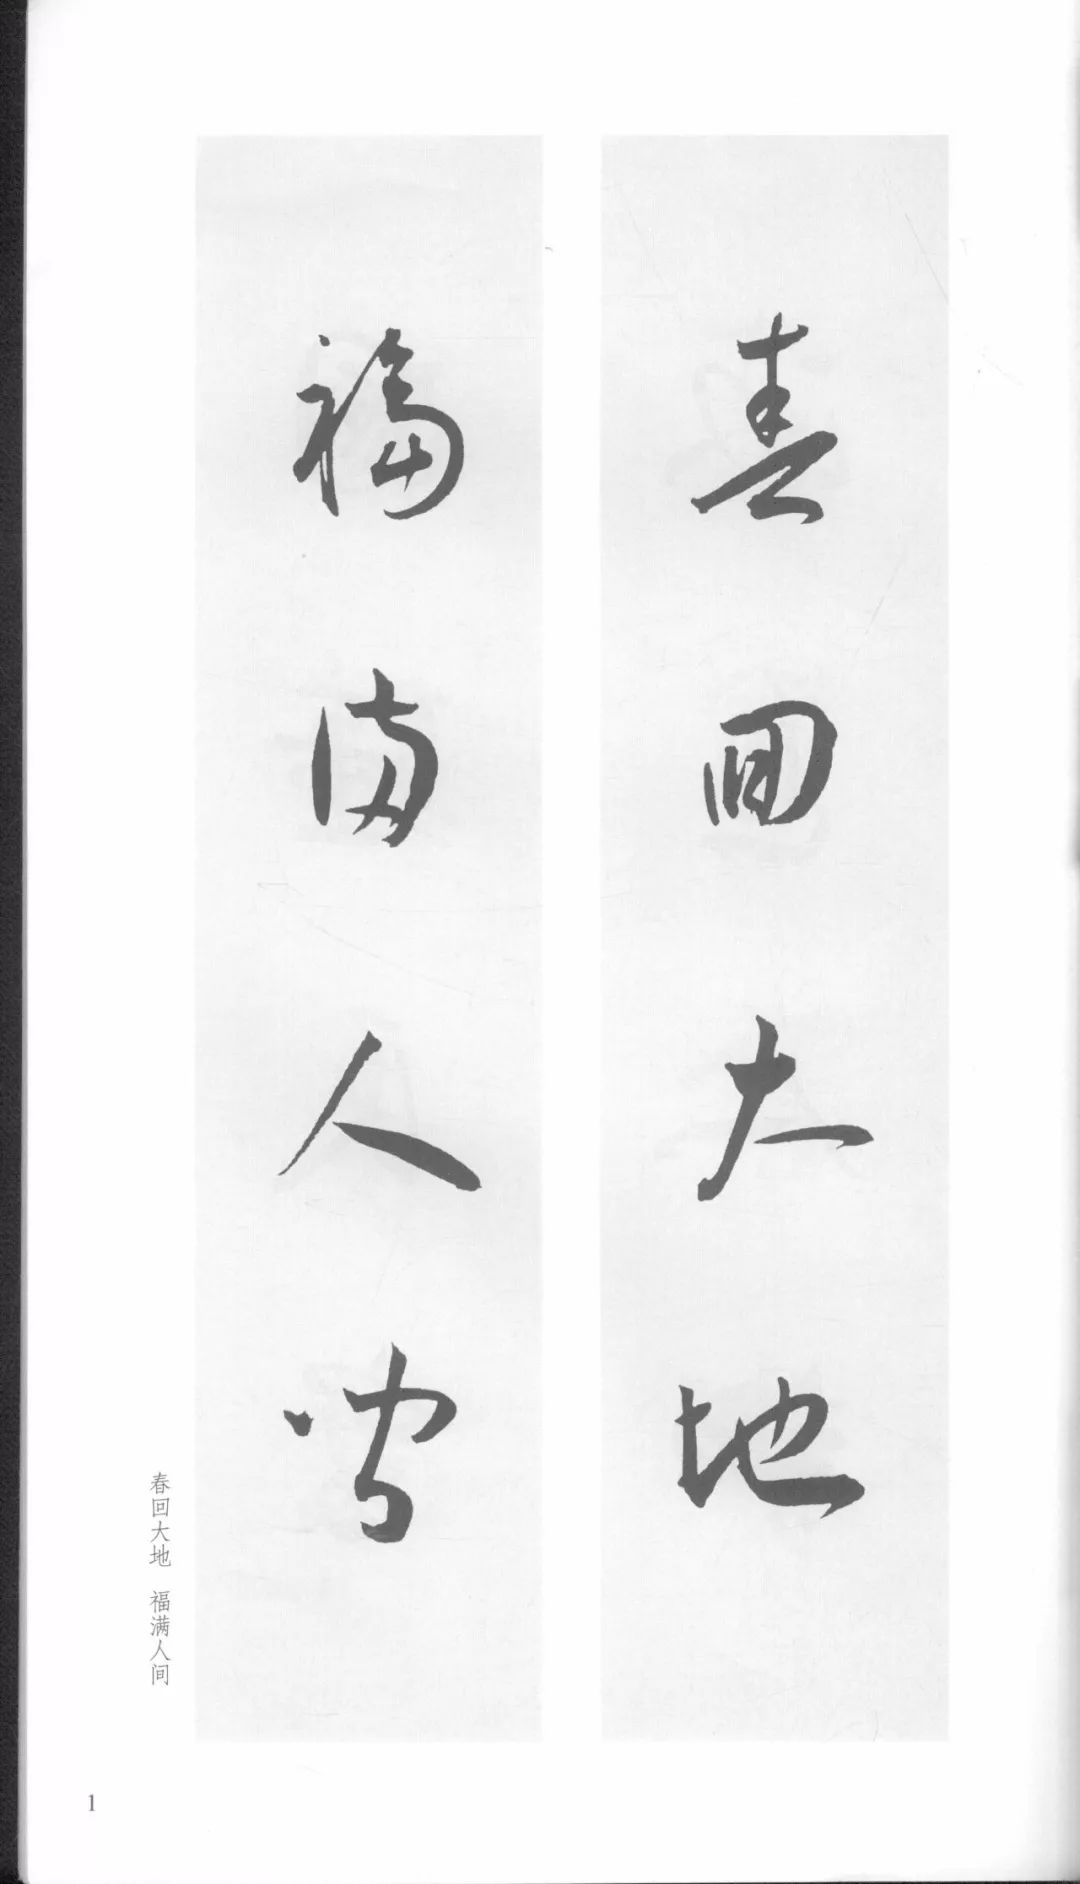 春回大地
福满人间
春回大地 福满人间
1